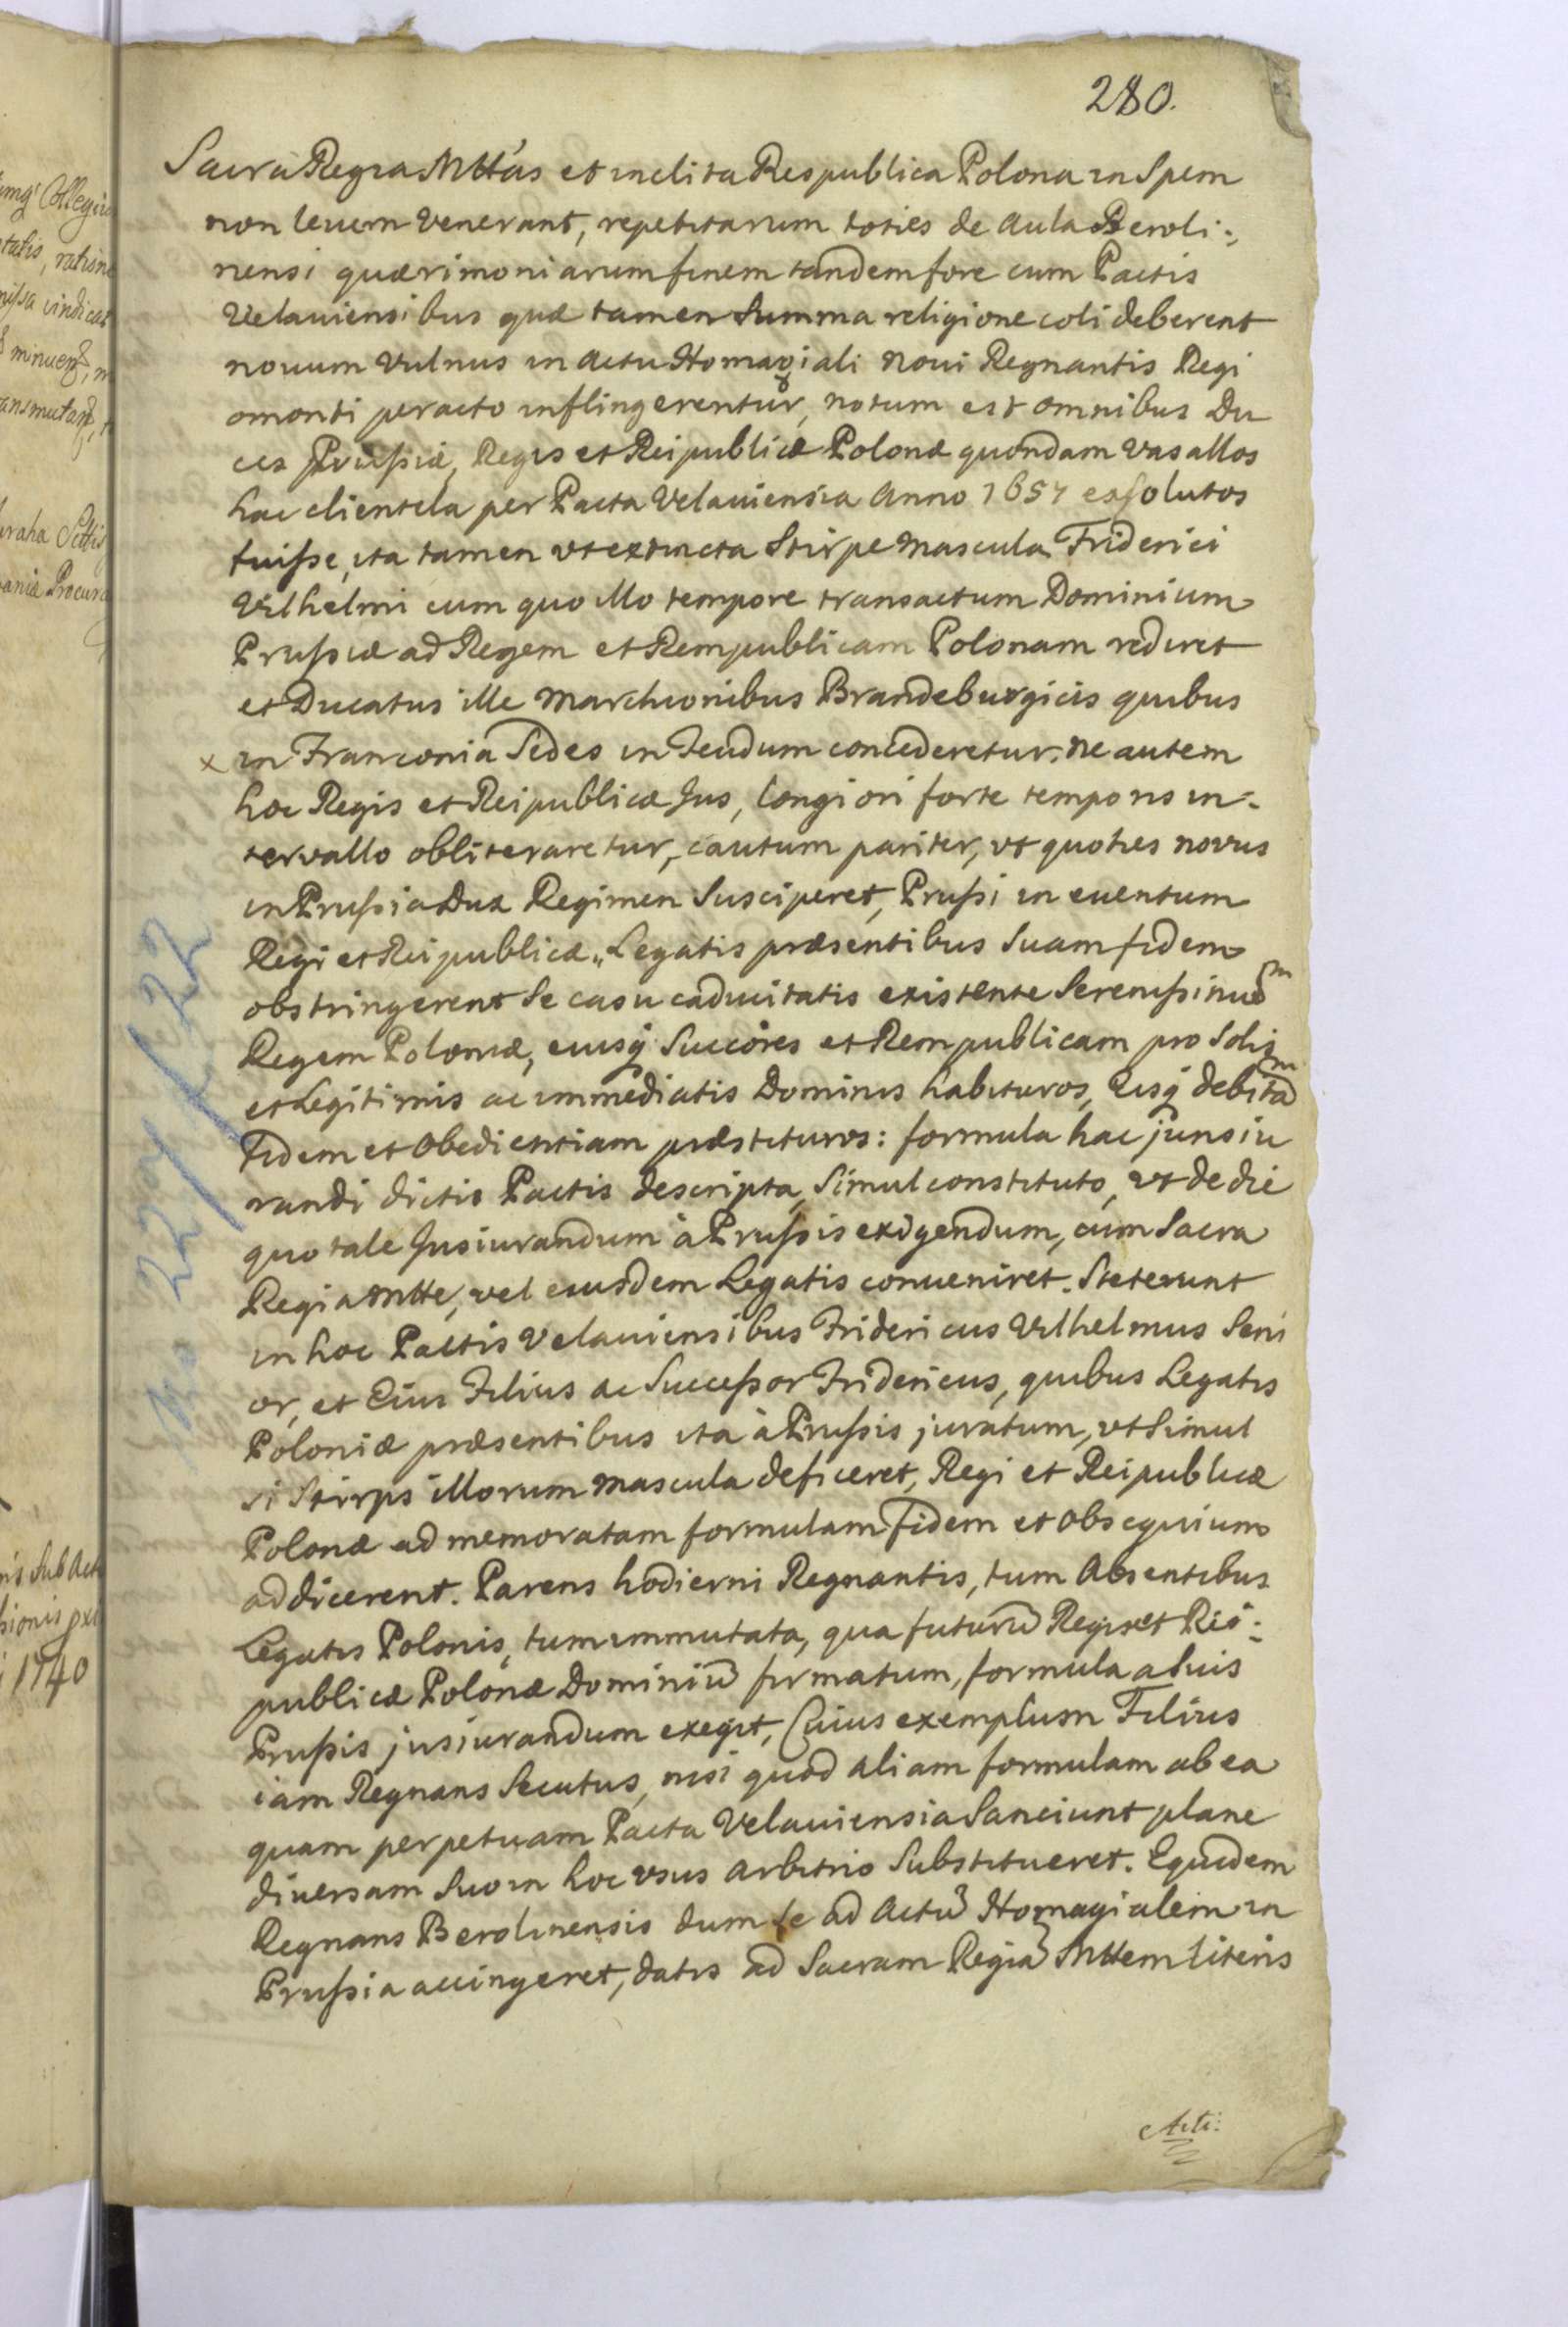 280.
Sacra Regia Mttas et inclita Respublica Polona in Spem
non leuem venerant, repetitarum toties de Aula Beroli:,
nensi quærimoniarum finem tandem fore cum Pactis
Velauiensibus quæ tamen Summa religione coli deberent
nouum vulnus in actu Homagiali Noui Regnantis Regi
omonti peracto inflingerentur, notum est omnibus Du
ces Prussiæ, Regis et Reipublicæ Polonæ quondam vasallos
hac clientela per Pacta Velauiensia Anno 1657 exsolutos
fuisse, ita tamen vt extincta Stirpe Mascula Friderici
Vilhelmi cum quo illo tempore transactum Dominium
Prussiæ ad Regem et Rempublicam Polonam rediret
et Ducatus ille Marchionibus Brandeburgicis quibus
x in Franconia Sedes in Feudum concederetur. Ne autem
hoc Regis et Reipublicæ Jus, longiori forte temporis in-
tervallo obliteraretur, cautum pariter, vt quoties novus
in Prussia Dux Regimen Susciperet, Prussi in euentum
Regi et Reipublicæ, Legatis præsentibus Suam fidem
obstringerent Se casu caducitatis existente Serenissimum
Regem Poloniæ, eiusq Succores et Rempublicam pro Solis
et Legitimis ac immediatis Dominis habituros, Eisq debitam
Fidem et Obedientiam præstituros: formula hac jurisiu
randi dictis Pactis descripta, Simul constituto, vt de die
quo tale Jusiurandum à Prussis exigendum, cum Sacra
Regia Mtte, vel eiusdem Legatis conueniret. Steterunt
in hoc Pactis Velauiensibus Fridericus Vilhelmus Seni
or, et Eius Filius ac Successor Fridericus, quibus Legatis
Poloniæ præsentibus ita à Prussis juratum, vt Simul
si Stirps illorum Mascula deficeret, Regi et Reipublicæ
Polonæ ad memoratam formulam Fidem et Obsequium
addicerent. Parens hodierni Regnantis, tum Absentibus
Legatis Polonis, tum immutata, qua futurū Regis et Rei:
publicæ Polonæ Dominiū firmatum, formula a suis
Prussis jusiurandum exegit, Cuius exemplum Filius
iam Regnans Secutus, nisi quod aliam formulam ab ea
quam perpetuam Pacta Velauiensia Sanciunt plane
diuersam Suo in hoc vsus Arbitrio Substitueret. Equidem
Regnans Berolinensis dum se ad Actū Homagialem in
Prussia accingeret, datis ad Sacram Regiā Mttem literis
1740